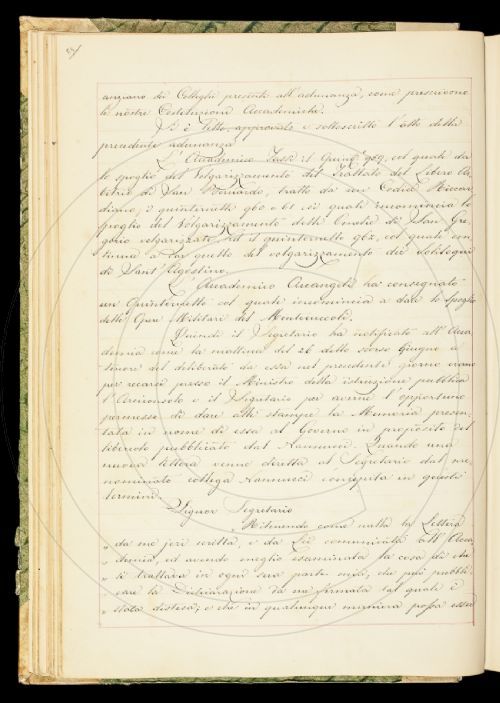 anziano dei Colleghi presenti all'adunanza, come prescrivono
le nostre Costituzioni Accademiche.
Si è letto, approvato e sottoscritto l'Atto della
precedente adunanza.
L'Accademico Tassi il Quinto 959, col quale dà
lo spoglio del Volgarizzamento del Trattato del Libero Ar-
bitrio di San Bernardo, tratto da un Codice Riccar-
diano; i quinternetti 960 e 61 coi quali incomincia lo
spoglio del Volgarizzamento delle Omelie di San Gre-
gorio volgarizzate, ed il quinternetto 962, col quale con-
tinua a far quello del volgarizzamento dei Soliloqui
di Sant'Agostino.
L'Accademico Arcangeli ha consegnato
un Quinternetto col quale incomincia a dare lo spoglio
delle Opere Militari del Montecuccoli.
Quindi il Segretario ha notificato all'Acca-
demia come la mattina del 26 dello scorso Giugno a
tenore del deliberato da essa nel precedente giorno erano
per recarsi presso il Ministro della istruzione pubblica
l'Arciconsolo e il Segretario per averne l'opportuno
permesso di dare alle stampe la Memoria presen-
tata in nome di essa al Governo in proposito del
libercolo pubblicato dal Nannucci. Quando una
nuova lettera venne diretta al Segretario dal pre-
nominato collega Nannucci concepita in questi
termini.
Signor Segretario
" Ritirando come nulla la Lettera
" da me jeri scritta, e da Lei comunicata all'Acca-
" demia, ed avendo meglio esaminata la cosa di che
" si trattava in ogni sua parte, che può pubbli-
" care la Dichiarazione da me firmata tal quale è
" stata distesa; e che in qualunque maniera possa esser